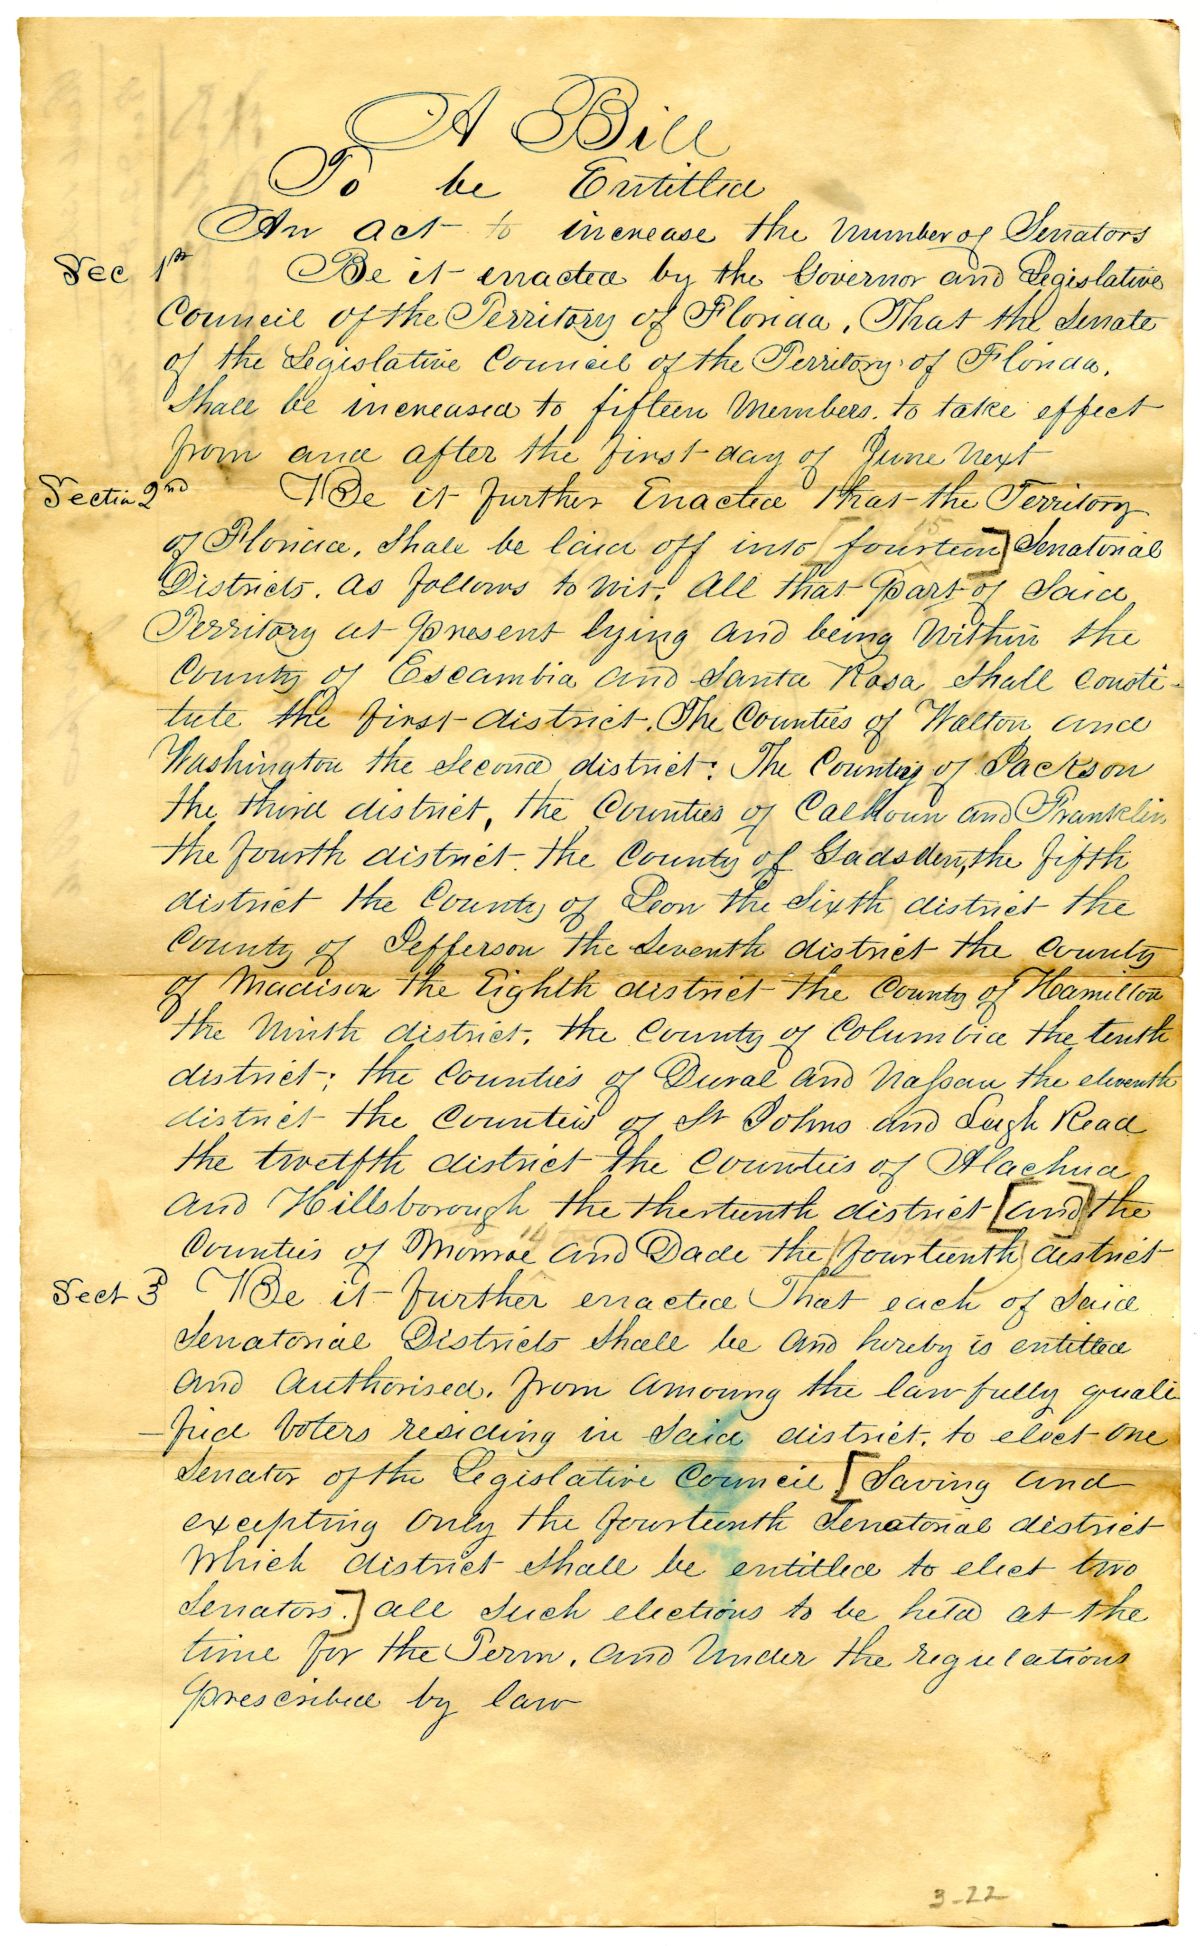 A Bill
To be Entitled
An act to increase the number of Senators
Sec 1st Be it enacted by the Governor and Legislative
Council of the Territory of Florida, That the Senate
of the Legislative Council of the Territory of Florida,
shall be increased to fifteen Members. to take effect
from and after the first day of June Next
Sectin 2nd Be it further Enacted that the Territory
15
of Florida, shall be laid off into [fourteen] Senatorial
Districts. as follows to wit; all that part of Said
Territory at present lying and being within the
County of Escambia and Santa Rosa shall consti-
tute the first district. The Counties of Walton and
Washington the Second district; The County of Jackson
the third district, the Counties of Calhoun and Franklin
the fourth district. the County of Gadsden, the fifth
district the County of Leon the Sixth district the
County of Jefferson the Seventh district the County
of Madison the Eighth district the County of Hamilton
the Ninth district, the County of Columbia the tenth
district; the Counties of Duval and Nassau the eleventh
district the Counties of St Johns and Leigh Read
the twelfth district the Counties of Alachua
and Hillsborough the therteenth district [and] the
Counties of Monroe 14 and Dade the (fourteenth) district
Sect 3 Be it further enacted That each of Said
Senatorial Districts shall be and hereby is entitled
and authorised, from amoung the lawfully quali
-fied voters residing in Said district, to elect one
Senator of the Legislative Council [Saving and
excepting only the fourteenth Senatorial district
which district shall be entitled to elect two
Senators.] all such elections to be held at the
time for the Term, and under the regulations
prescribed by law
3-22